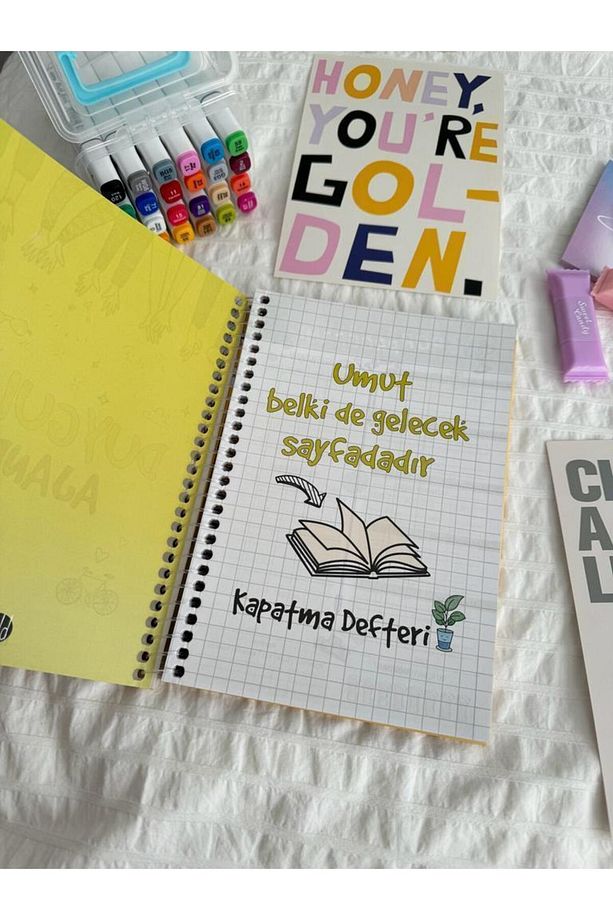 HONEY,
YOU'RE
GOL-
DEN.
Sweet
Candy
Umut
belki de gelecek
sayfadadır
Kapatma Defteri